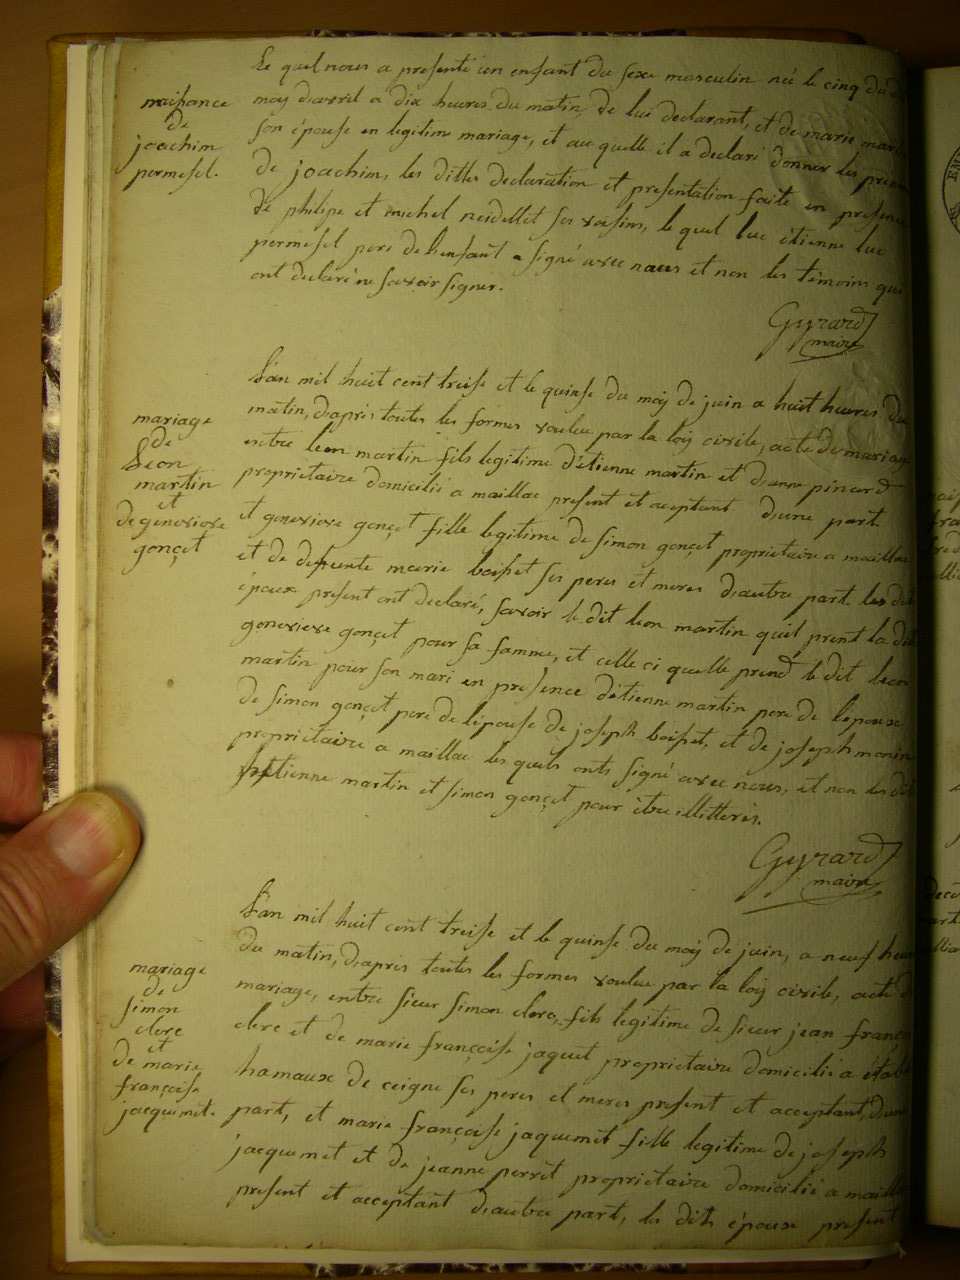 le quel nous a presenté un enfant du sexe masculin né le cinq du
naissance
de
joachim
permesel.
moy davril a dix heures du matin, de lui declarant, et de marie
son épouse en legitime mariage, et au quelle il a declaré donner les
de joachim, les dittes declaration et presentation faite en
de philipe et michel neidellet ses voisins, le quel luc étienne luc
permesel pere de lenfant a signé avec nous et non les témoins qui
ont declaré ne savoir signer.
Gyrard
maire
L'an mil huit cent treise et le quinse du moy de juin a huit heures du
mariage
de
Leon
martin
et
de genevieve
gonçet
matin, daprés toutes les formes voulue par la loy civile, acte de mariage
entre leon martin fils legitime détienne martin et dianne pinard
propriétaire domicilié a maillac present et aceptant dune part.
et genevieve gonçet fille legitime de simon gonçet propriétaire a maillac
et de defunte marie boisset ses peres et meres dautre part. les dit
époux present ont declaré, savoir le dit leon martin quil prent la dit
genevieve gonçet pour sa famme, et celle ci quelle prend le dit leon
martin pour son mari en presence détienne martin pere de lepoux
de simon gonçet pere de lépouse de joseph boisset, et de joseph monin
propriétaire a maillac les quels onts signé avec nous, et non les dit
étienne martin et simon gonçet pour être illitteris.
Gyrard
maire
L'an mil huit cent treise et le quinse du moy de juin, a neuf heur
mariage
de
simon
clerc
et
de marie
françoise
jacquemet.
du matin, daprés toutes les formes voulue par la loy civile, acte
mariage, entre sieur simon clerc, fils legitime de sieur jean
clerc et de marie françoise jaquet propriétaire domicilié a
hamaux de ceigne ses peres et meres present et acceptant, dune
part, et marie françoise jaquemet fille legitime de joseph
jacquemet et de jeanne perret propriétaire domicilié a maillac
present et acceptant dautre part, les dits époux present